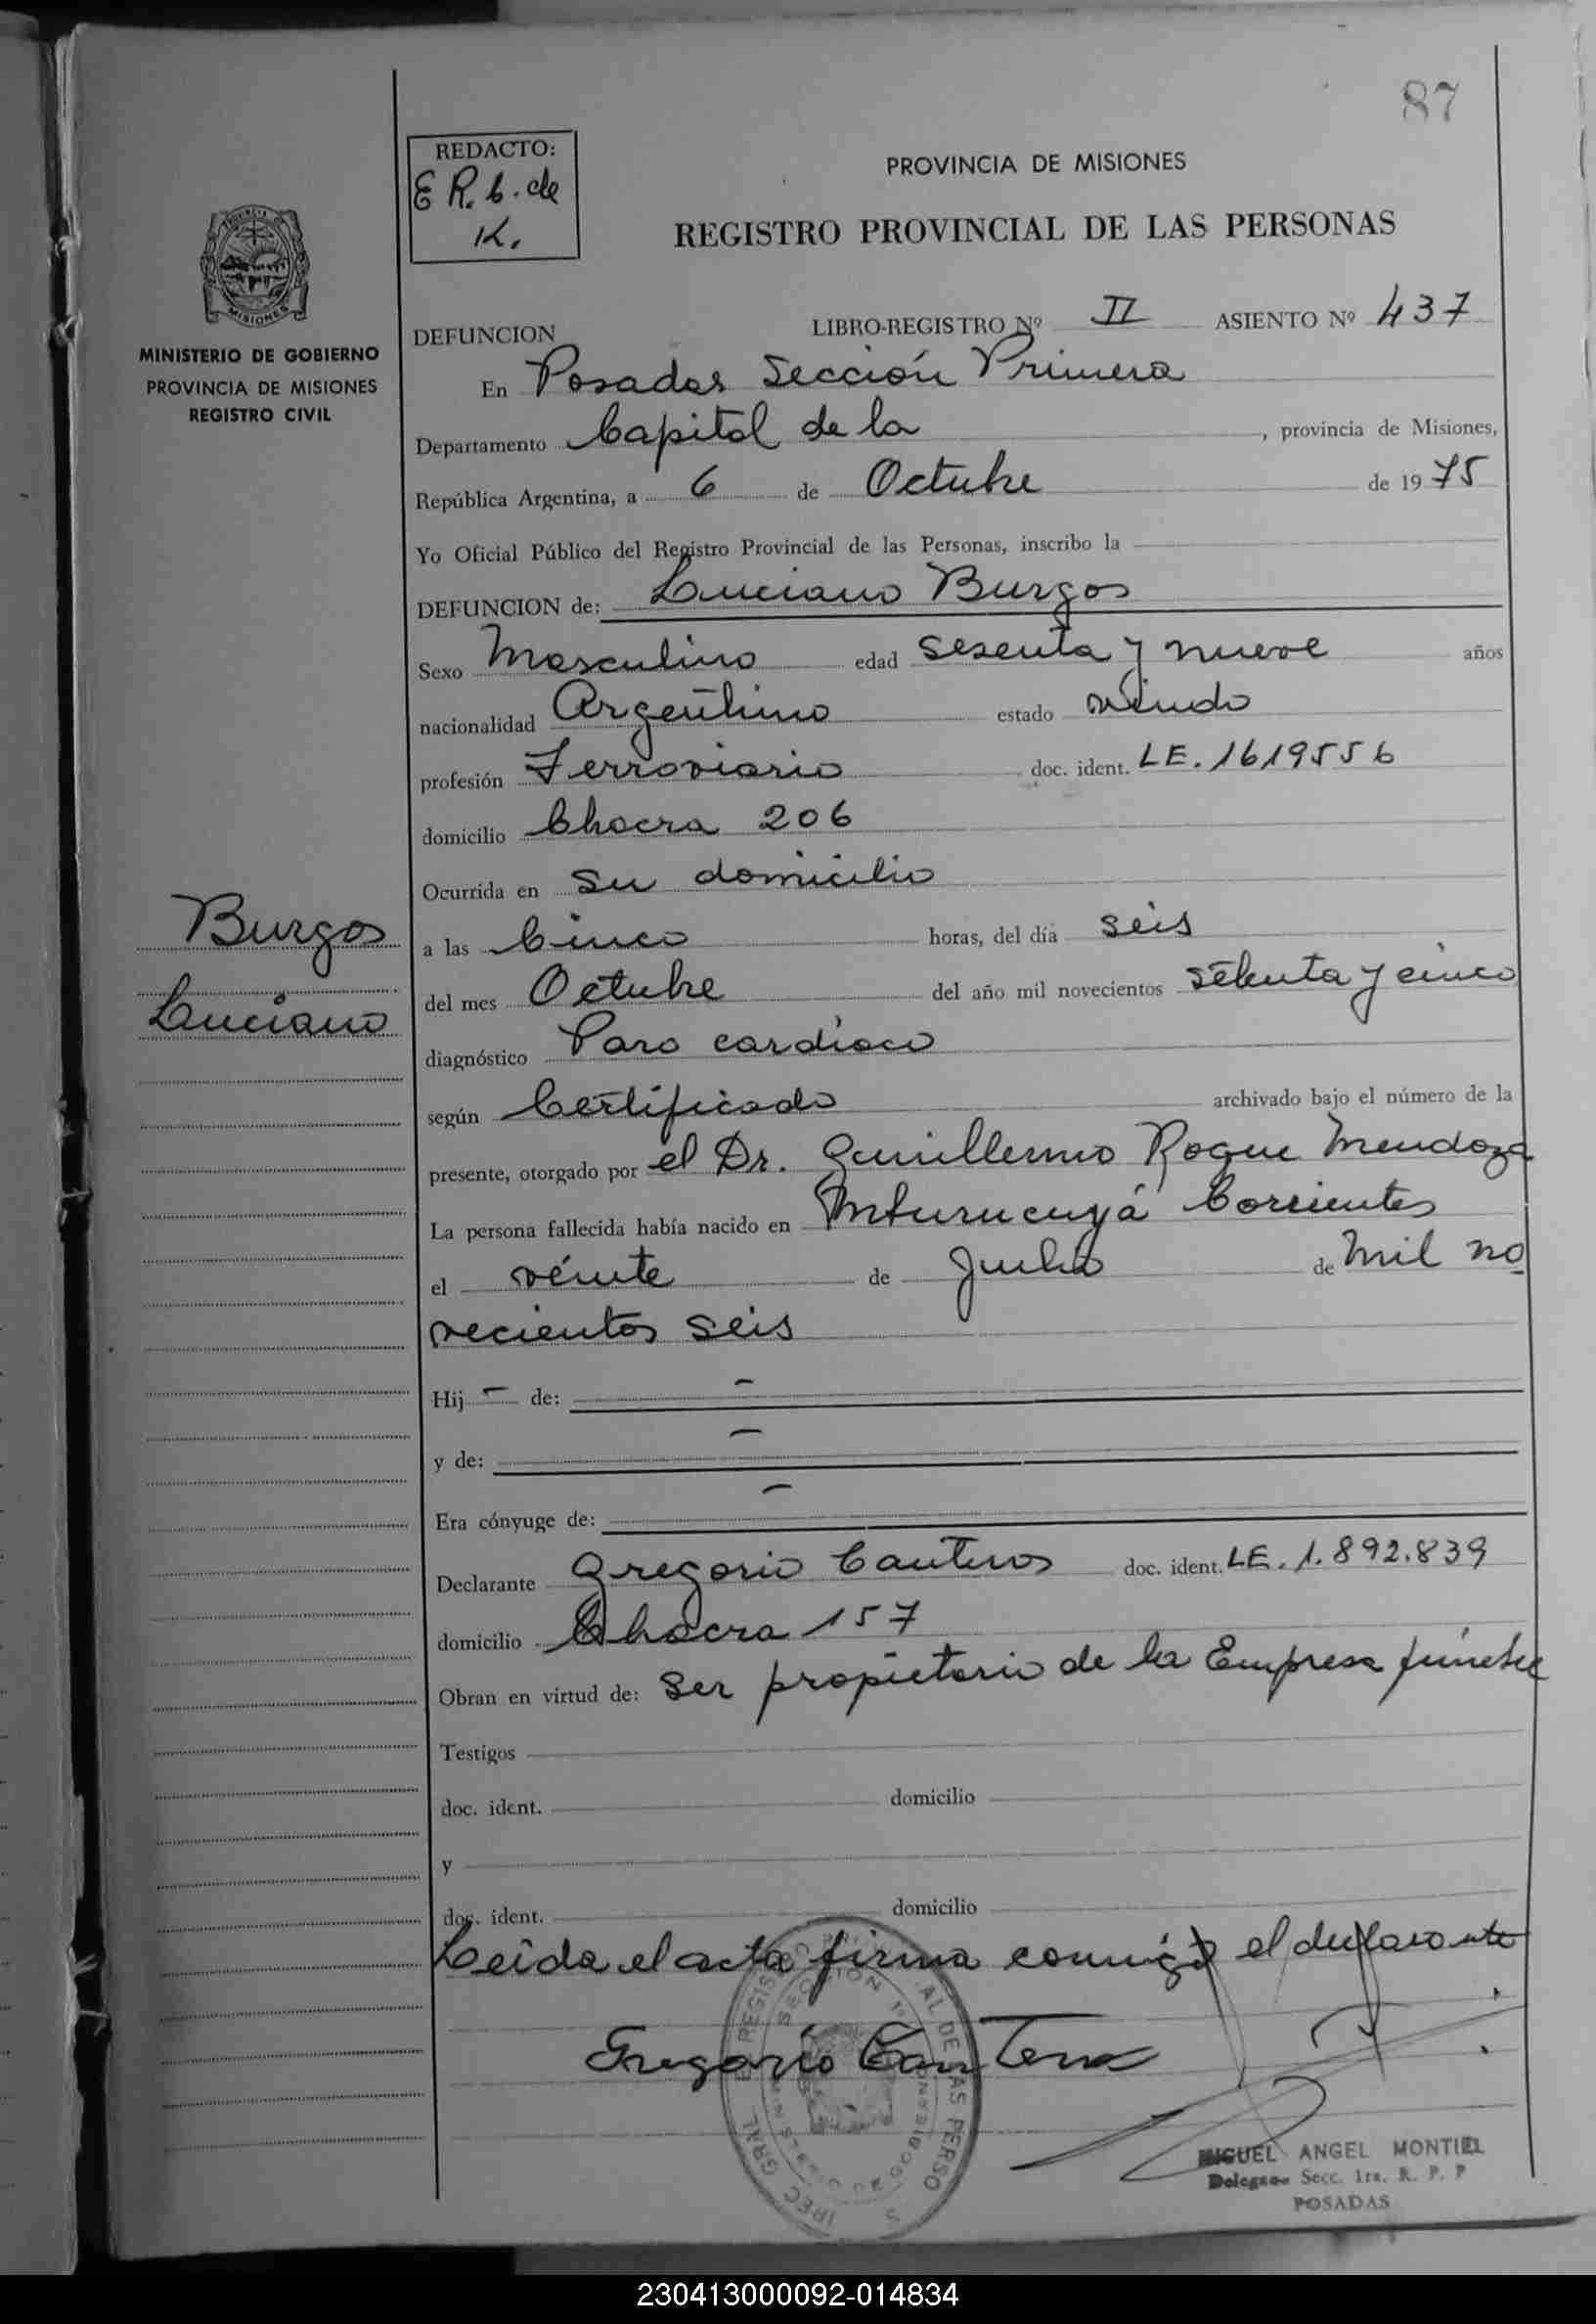 87
REDACTO:
E R. b. de
K.
PROVINCIA DE MISIONES
REGISTRO PROVINCIAL DE LAS PERSONAS
MISIONES
MINISTERIO DE GOBIERNO
PROVINCIA DE MISIONES
REGISTRO CIVIL
DEFUNCION LIBRO-REGISTRO Nº II ASIENTO Nº 437
En Posadas Sección Primera
Departamento Capital de la , provincia de Misiones,
República Argentina, a 6 de Octubre de 1975
Yo Oficial Público del Registro Provincial de las Personas, inscribo la
DEFUNCION de: Luciano Burgos
Sexo Masculino edad sesenta y nueve años
nacionalidad Argentino estado viudo
profesión Ferroviario doc. ident. LE. 1619556
domicilio Chacra 206
Ocurrida en su domicilio
Burgos
Luciano
a las Cinco horas, del día seis
del mes Octubre del año mil novecientos setenta y cinco
diagnóstico Paro cardíaco
según Certificado archivado bajo el número de la
presente, otorgado por el Dr. Guillermo Roque Mendoza
La persona fallecida había nacido en Mburucuyá Corrientes
el veinte de Julio de Mil no
vecientos seis
Hij - de: -
y de: -
Era cónyuge de: -
Declarante Gregorio Canteros doc. ident. LE. 1.892.839
domicilio Chacra 157
Obran en virtud de: Ser propietario de la Empresa fúnebre
Testigos
doc. ident. domicilio
y
doc. ident. domicilio
Leida el acta firma conmigo el declarante
Gregorio Canteros
MIGUEL ANGEL MONTIEL
Delegado Secc. 1ra. R. P. P
POSADAS
230413000092-014834